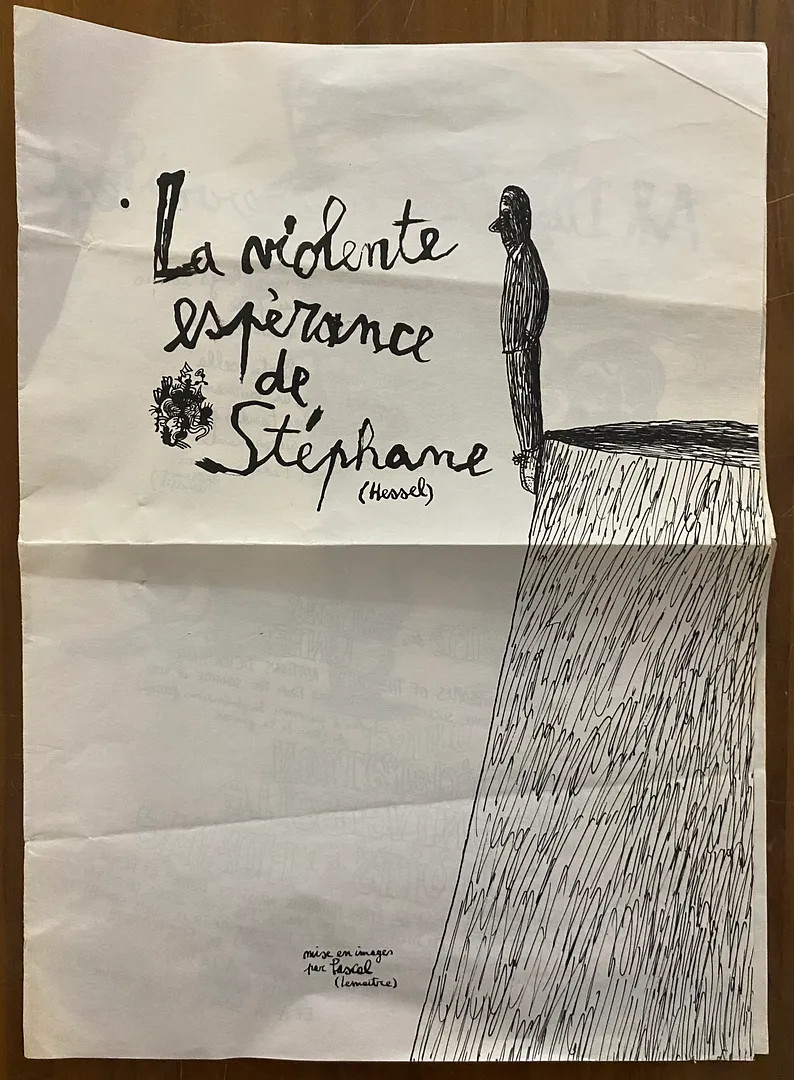 La violente
espèrance
de
Stéphane
(Hessel)
mise en images
par Pascal
(Lemaitre)